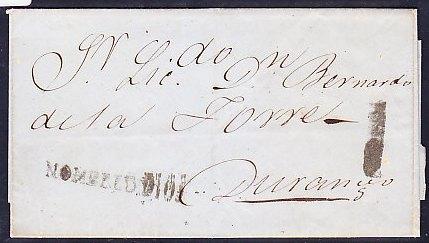 Sr. Lic.do Dn Bernardo
de la Torre
NOMBRE D. DIOS
Durango